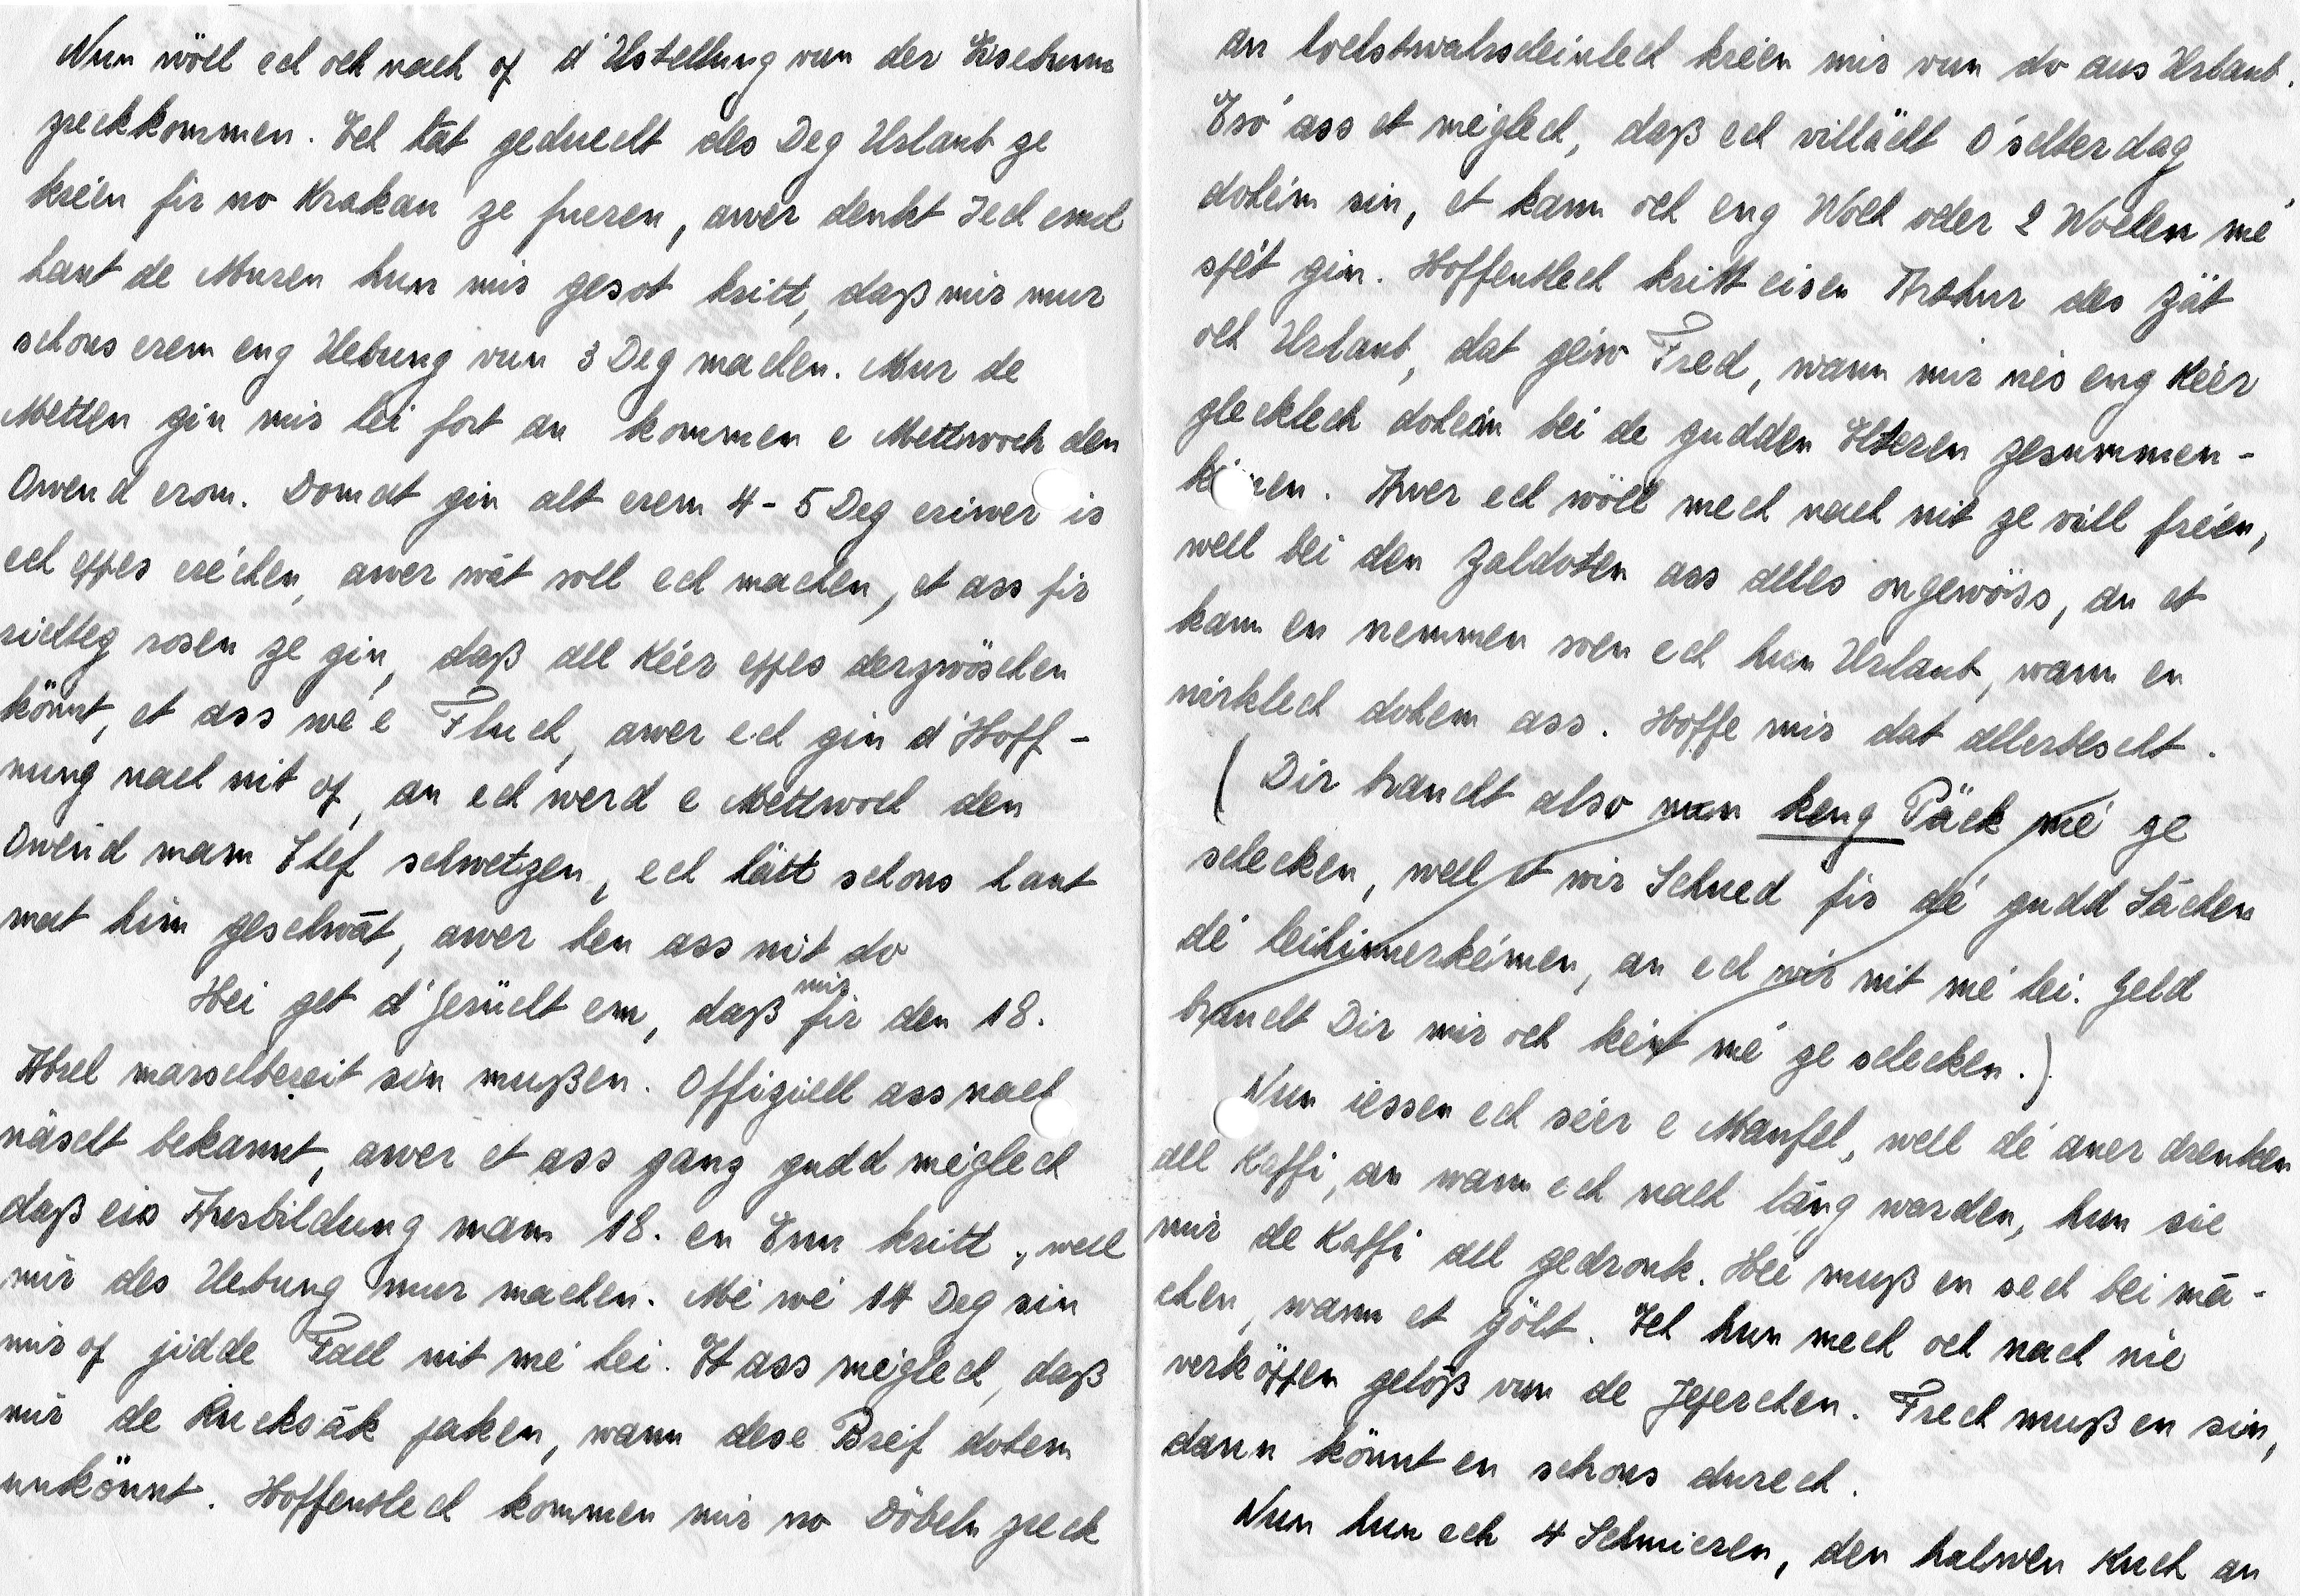 Nun wöll ech och nach of d'Ustellung vun der Eisebunn
zreckkommen. Ech hat geduecht des Deg Urlaub ze
kréien fir no Krakau ze fueren, awer denkt Iech emol
haut de Muren hun mir gesot kritt, daß mir mur
schons erem eng Uebung vun 3 Deg machen. Mur de
Metten gin mir hei fort an kommen e Mettwoch den
Owend erom. Domat gin alt erem 4-5 Deg eriwer ir
ech eppes eréchen, awer wat soll ech machen, et ass fir
richteg rosen ze gin, daß all Kéier eppes derzwöschen
könnt, et ass wé e Fluch, awer ech gin d'Hoff-
nung nach nit of, an ech werd e Mettwoch den
Owend mam Chef schwetzen, ech hätt schons haut
mat him geschwat, awer hen ass nit do
Hei get d'Gerücht em, daß mir fir den 18.
Abrel marschbereit sin mußen. Offiziell ass nach
näscht bekannt, awer et ass ganz gudd méglech
daß eis Ausbildung mam 18. en Enn kritt, well
mir des Uebung muer machen. Mé wé 14 Deg sin
mir of jidde Fall nit mé hei. Et ass méglech, daß
mir de Rucksak paken, wann dese Bréif dohem
unkönnt. Hoffentlech kommen mir no Döbeln zreck
an hochstwahrscheinlech kréien mir vun do aus Urlaub.
Esó ass et méglech, daß ech villäicht Óschterdag
dohém sin, et kann och eng Woch oder 2 Wochen mé
spét gin. Hoffentlech kritt eisen Arthur des Zät
och Urlaub, dat géiw Fred, wann mir nés eng Kéier
glecklech dohém bei de gudden Elteren zesummen-
Awer ech wöll mech nach nit ze vill fréen,
well bei den Zaldoten ass alles ongewöss, an et
kann en nemmen soen ech hun Urlaub, wann en
wirklech dohem ass. Hoffe mir dat allerbescht.
(Dir braucht also nun keng Päck mé ze
schecken, well et wir Schued fir dé gudd Sächen
dé heihinnerkéimen, an ech wir nit mé hei. Geld
braucht Dir mir och ként mé ze schecken.)
Nun iessen ech séier e Maufel, well dé aner drenken
all Kaffi, an wann ech nach lang warden, hun sie
mir de Kaffi all gedronk. Hei muß en sech bei mä-
chen, wann et gölt. Ech hun mech och nach nie
verköffen geloß vun de Jeperchen. Frech muß en sin,
dann könnt en schons durech.
Nun hun ech 4 Schmieren, den halwen Kuch an